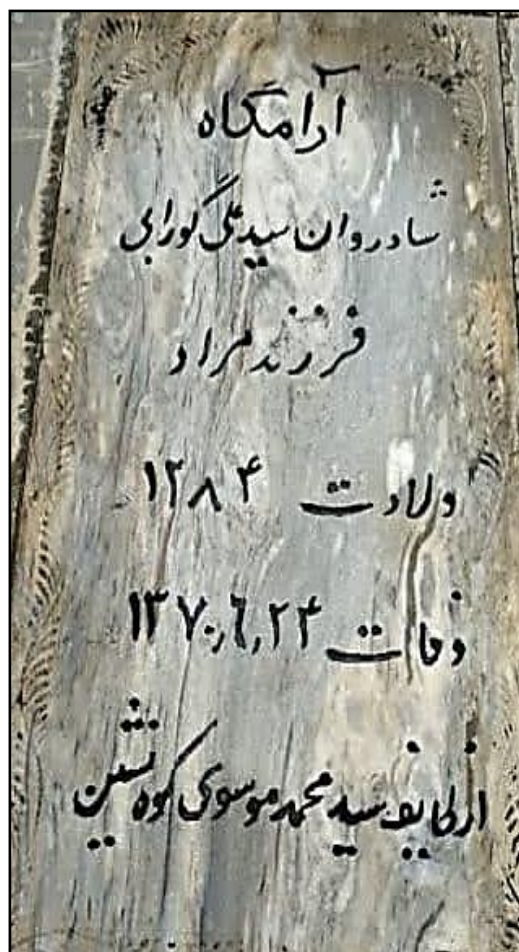 آرامگاه
شادروان سید علی گورابی
فرزند مراد
ولادت ۱۲۸۴
وفات ۱۳۷۰٫۶٫۲۴
از طایفه سید محمد موسوی کوه نشین